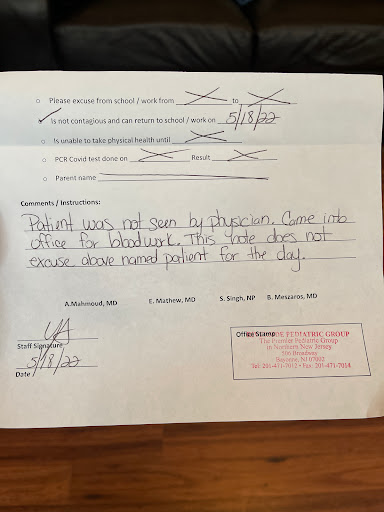 Please excuse from school / work from to
Is not contagious and can return to school / work on 5/18/22
Is unable to take physical health until
PCR Covid test done on Result
Parent name
Comments / Instructions:
Patient was not seen by physician. Came into
office for bloodwork. This note does not
excuse above named patient for the day.
A.Mahmoud, MD E. Mathew, MD S. Singh, NP B. Meszaros, MD
Staff Signature
5/18/22
Date
Office Stamp DE PEDIATRIC GROUP
The Premier Pediatric Group
in Northern New Jersey
Broadway
Bayonne, NJ 07002
Tel: 201-471-7012 • Fax: 201-471-7014